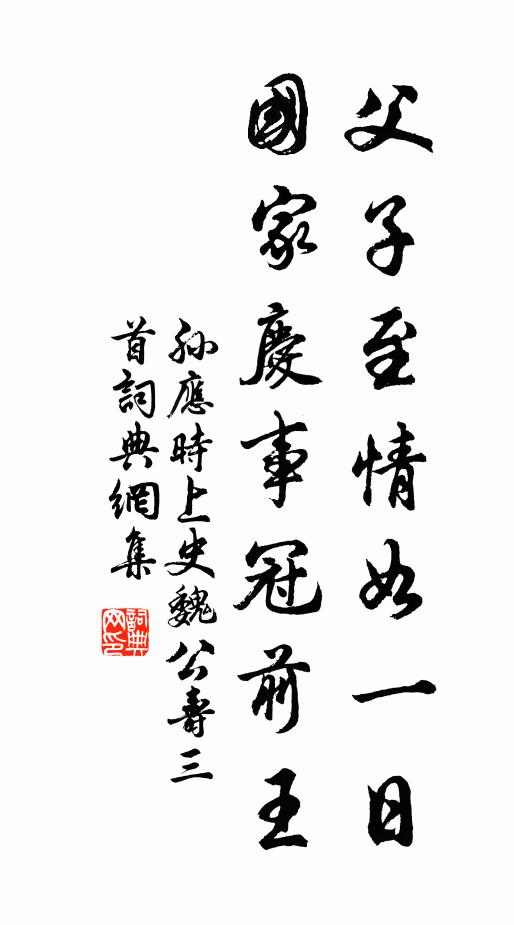 父子至情如一日
國家慶事冠前王
孫應時上史魏公壽三
首詞典網集
詞典
网印